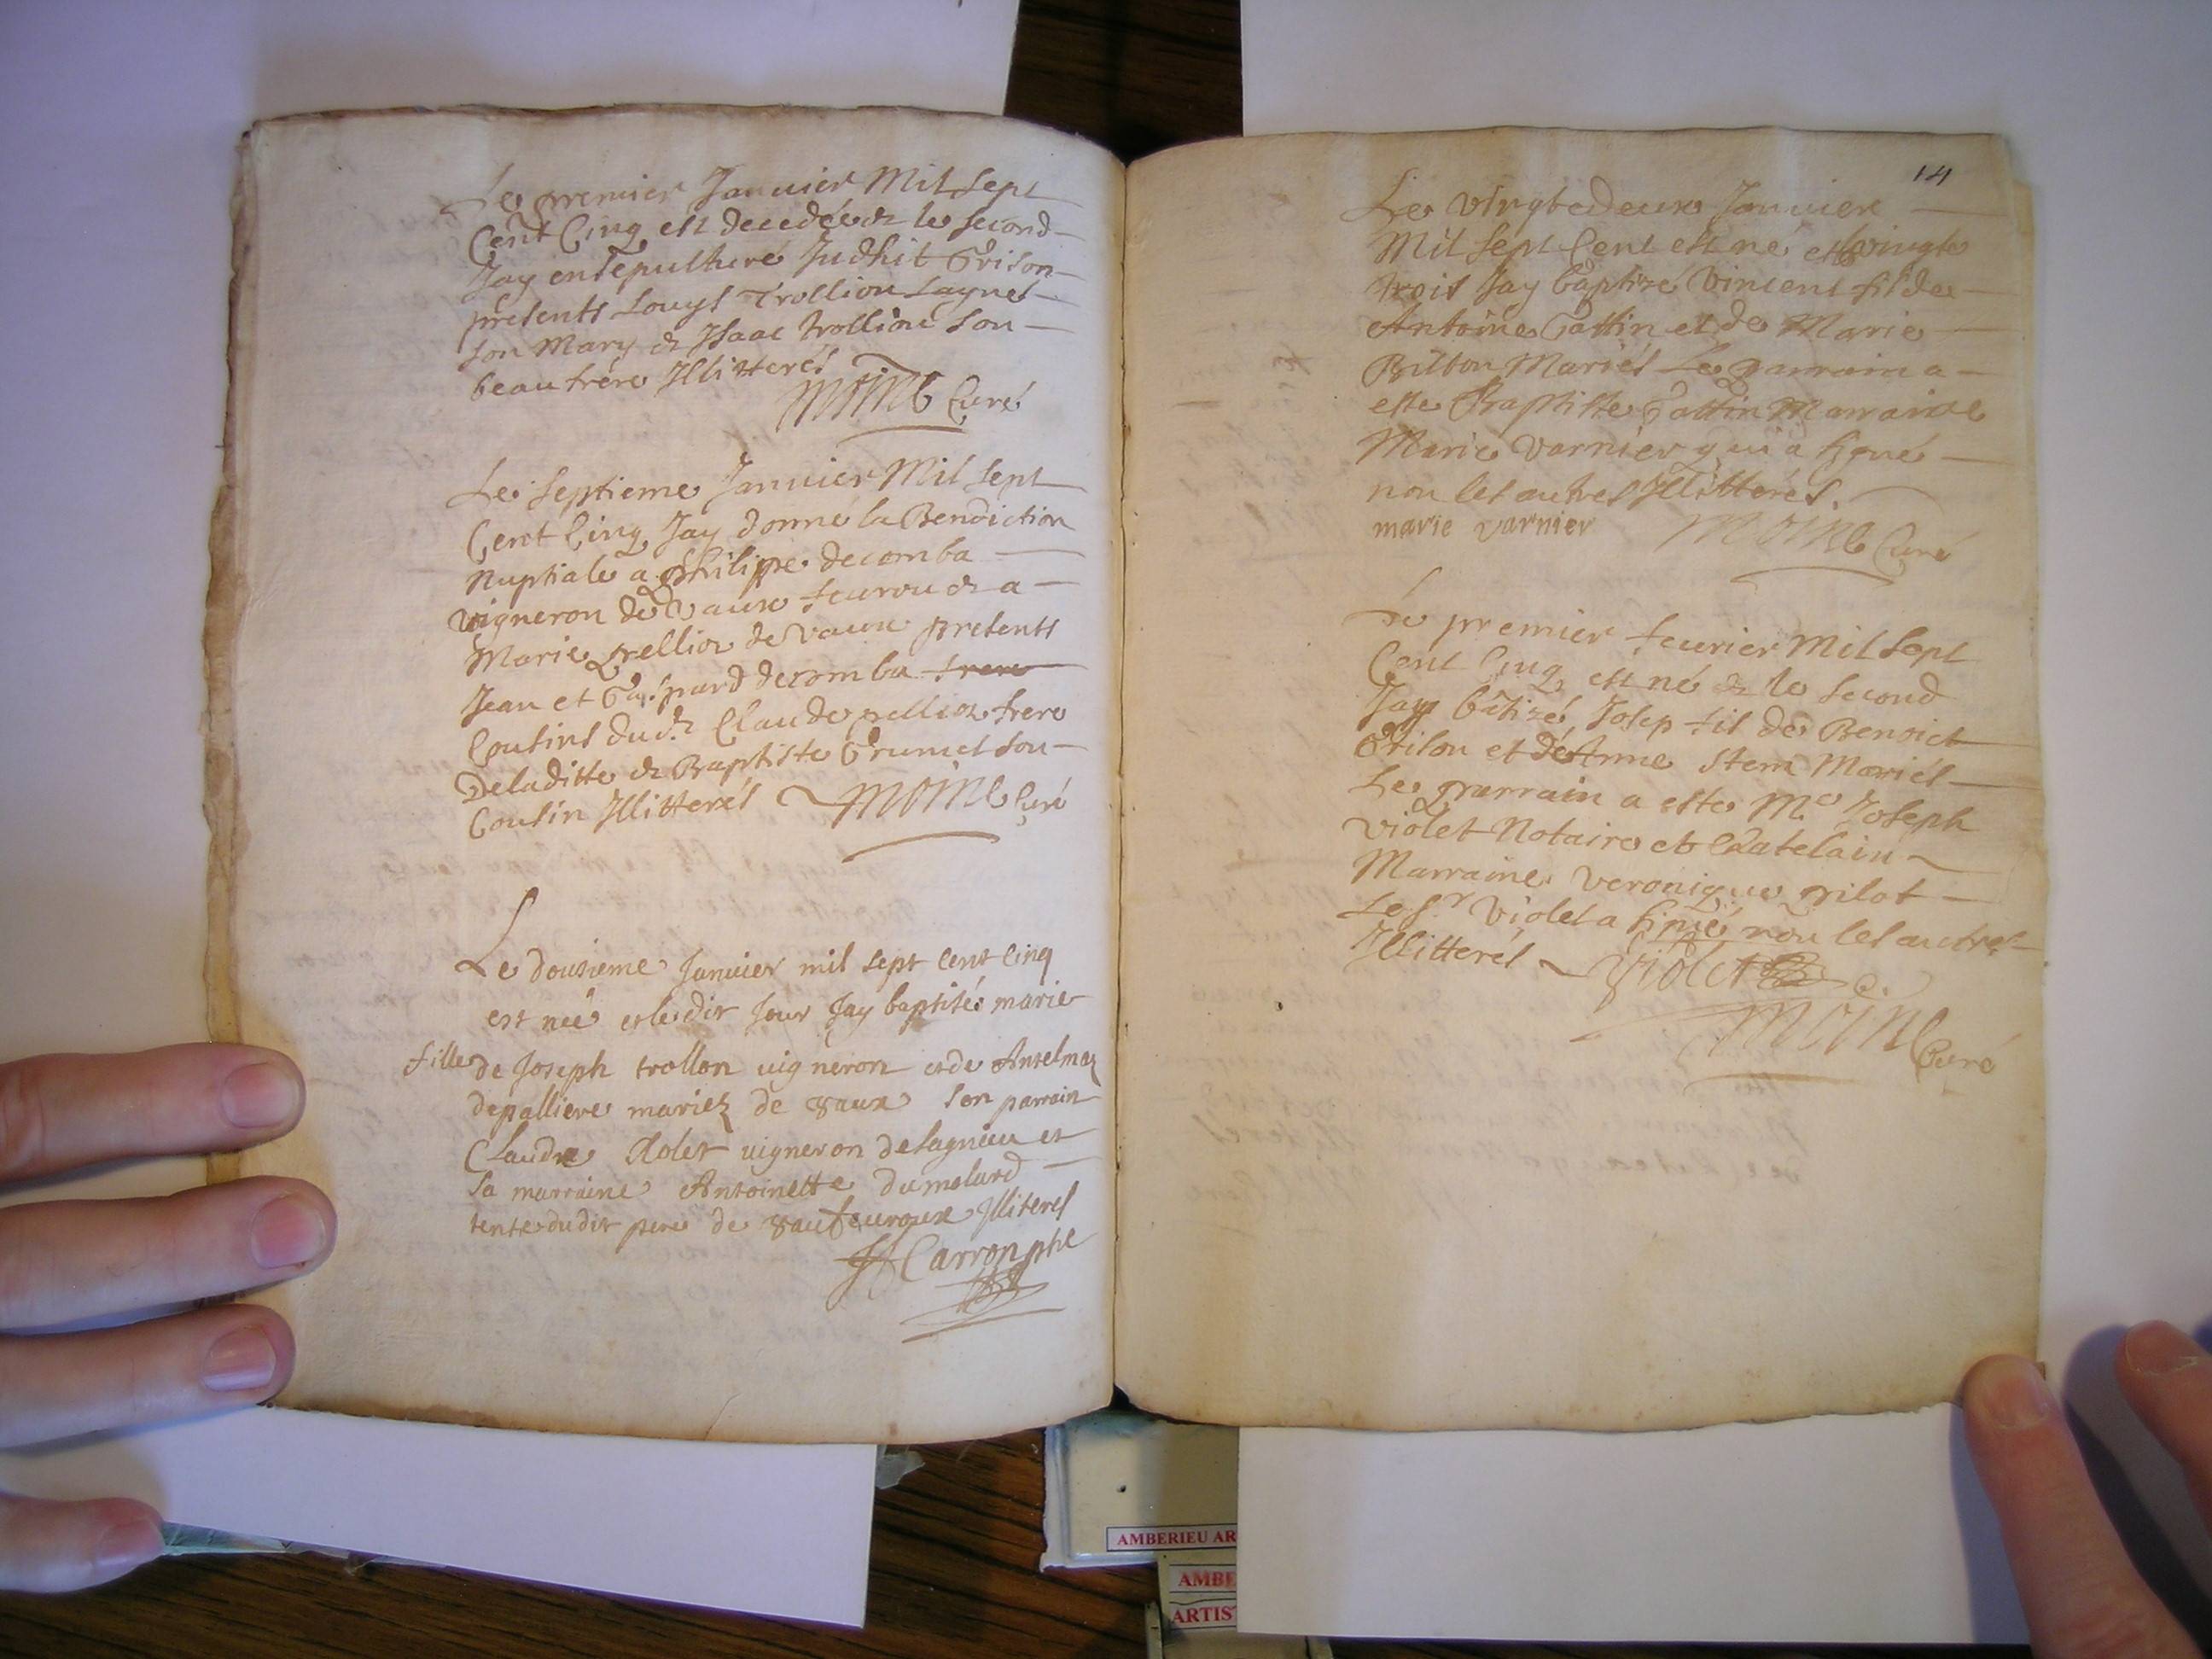 Le premier Januier Mil sept
Cent Cinq est decedée & le second
Jay ensepulturé Judhit Grison
presents Louys Trollion Laynel
son Mary & Isaac trollion son
beau frére Illitterés
Moine Curé
Le septieme Januier Mil sept
Cent Cinq Jay donné la Benediction
Nuptiale a philippe decomba
vigneron de Vaux feurou & a
Marie grellion de vaux presents
Jean et Gaspard decomba frere
Cousins dud.t Claude grellion frere
De laditte & Baptiste Grumet son
Cousin Illitterés Moine Curé
Le dousieme Januier mil sept cent cinq
est neé et ledit Jour Jay baptisée marie
fille de Joseph trollon uigneron et de Anselmaz
depalliere mariez de vaux son parrain
Claude Rolet uigneron de lagnieu et
sa marraine Antoinette dumolard
tente dudit pere de vaufeuroux Illiterés
Carron ptre
14
Le vingtedeux Januier
Mil sept Cent est né et le vingte
trois Jay baptizé Vincent fil de
Antoine Gattin et de Marie
Bilbon Mariés Le parrain a
este Baptiste Gattin Marraine
Marie varnier qui a signé
non les autres Illitterés.
marie varnier Moine Curé
Le premier feurier Mil sept
Cent Cinq est né & le second
Jay bâtizé Josep fil de Benoict
Grison et de Anne Stem Mariés
Le parrain a este M.e Joseph
violet Notaire et Chatelain
Marraine Veronique pilot
Le S.r violet a signé non les autres
Illitterés Violet
Moine Curé
AMBERIEU AR
AMBE
ARTIS